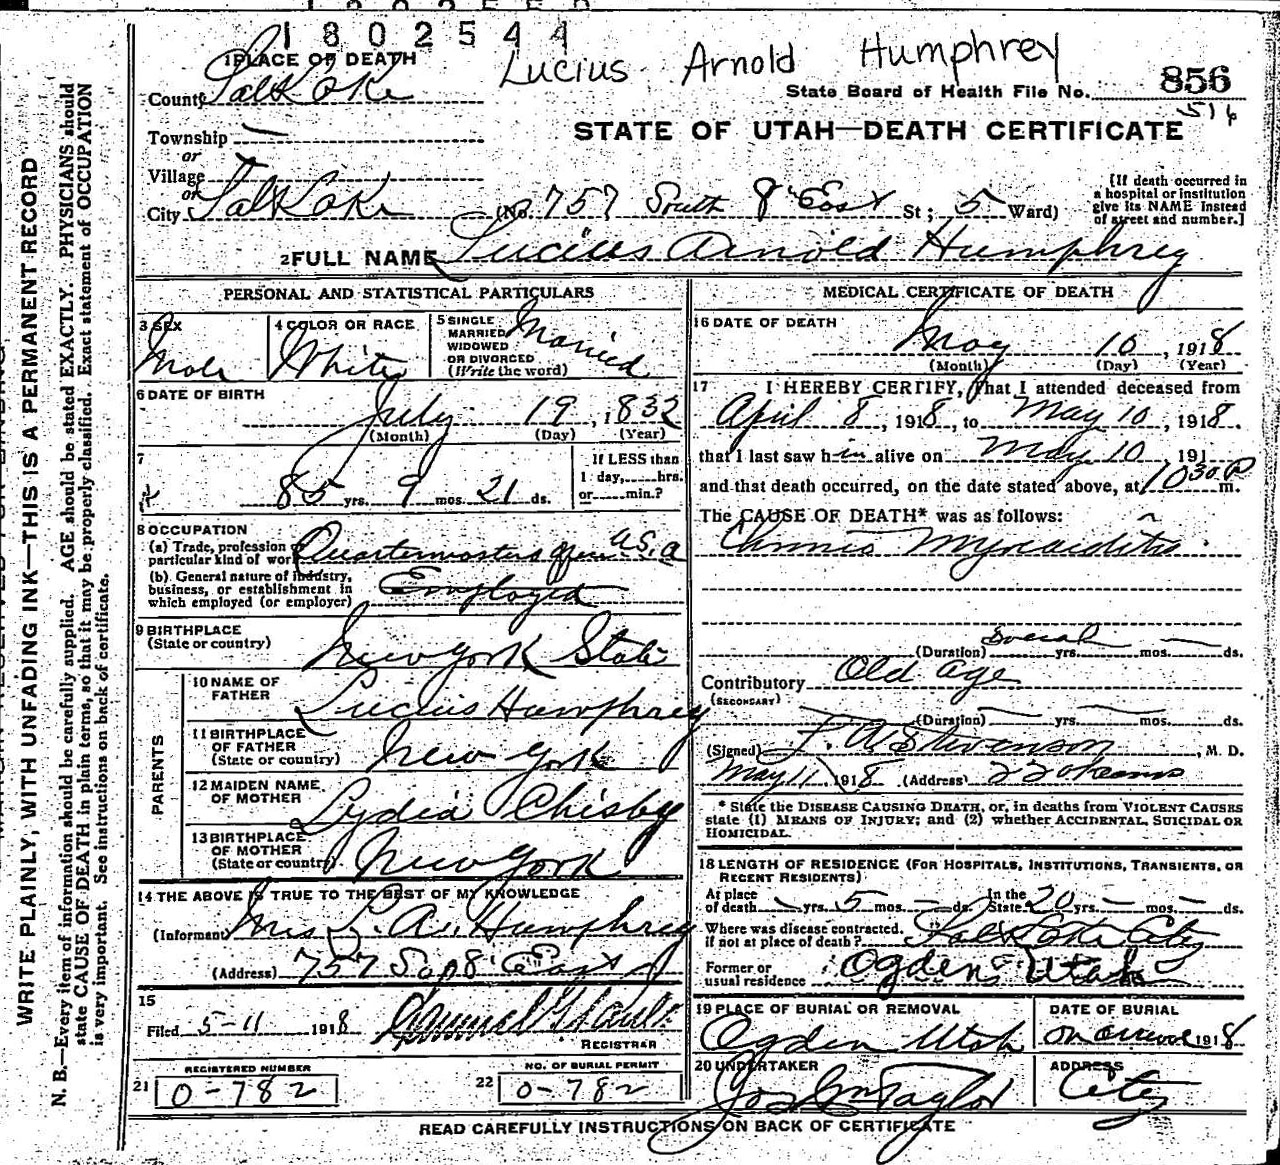 1802544
Lucius Arnold Humphrey
1 PLACE OF DEATH
County Salt Lake
State Board of Health File No. 856
516
Township —
or
Village
or
City Salt Lake
STATE OF UTAH—DEATH CERTIFICATE
(No. 757 South 8 East St; 5 Ward)
[If death occurred in a hospital or institution give its NAME instead of street and number.]
2 FULL NAME Lucius Arnold Humphrey
PERSONAL AND STATISTICAL PARTICULARS
3 SEX Male
4 COLOR OR RACE White
5 SINGLE MARRIED WIDOWED OR DIVORCED (Write the word) Married
6 DATE OF BIRTH
July 19, 1832
(Month) (Day) (Year)
7
85 yrs. 9 mos. 21 ds.
If LESS than 1 day, hrs. or min.?
8 OCCUPATION
(a) Trade, profession particular kind of work Quartermasters office U.S.A
(b). General nature of industry, business, or establishment in which employed (or employer) Employed
9 BIRTHPLACE
(State or country) New York State
PARENTS
10 NAME OF FATHER Lucius Humphrey
11 BIRTHPLACE OF FATHER (State or country) New York
12 MAIDEN NAME OF MOTHER Lydia Chisby
13 BIRTHPLACE OF MOTHER (State or country) New York
14 THE ABOVE IS TRUE TO THE BEST OF MY KNOWLEDGE
(Informant) Mrs L. A. Humphrey
(Address) 757 So 8 East
15
Filed 5-11 1918
REGISTRAR
REGISTERED NUMBER
21 0-782
NO. OF BURIAL PERMIT
22 0-782
MEDICAL CERTIFICATE OF DEATH
16 DATE OF DEATH
May 10, 1918
(Month) (Day) (Year)
17 I HEREBY CERTIFY, That I attended deceased from
April 8, 1918, to May 10, 1918.
that I last saw h im alive on May 10, 191
and that death occurred, on the date stated above, at 10 30 P m.
The CAUSE OF DEATH* was as follows:
Chronic Myocarditis
(Duration) Several yrs. — mos. ds.
Contributory Old Age
(SECONDARY)
(Duration) yrs. mos. ds.
(Signed) F. A. Stevenson, M. D.
May 11 1918 (Address) 220 Kearns
* State the DISEASE CAUSING DEATH, or, in deaths from VIOLENT CAUSES
state (1) MEANS OF INJURY; and (2) whether ACCIDENTAL, SUICIDAL OR
HOMICIDAL.
18 LENGTH OF RESIDENCE (FOR HOSPITALS, INSTITUTIONS, TRANSIENTS, OR
RECENT RESIDENTS)
At place of death — yrs. 5 mos. — ds. In the State 20 yrs. — mos. — ds.
Where was disease contracted. if not at place of death? Salt Lake City
Former or usual residence Ogden Utah
19 PLACE OF BURIAL OR REMOVAL Ogden Utah
DATE OF BURIAL on arrival 1918
20 UNDERTAKER Jos Wm Taylor
ADDRESS City
READ CAREFULLY INSTRUCTIONS ON BACK OF CERTIFICATE
WRITE PLAINLY, WITH UNFADING INK—THIS IS A PERMANENT RECORD
N. B.—Every item of information should be carefully supplied. AGE should be stated EXACTLY. PHYSICIANS should
state CAUSE OF DEATH in plain terms, so that it may be properly classified. Exact statement of OCCUPATION
is very important. See instructions on back of certificate.